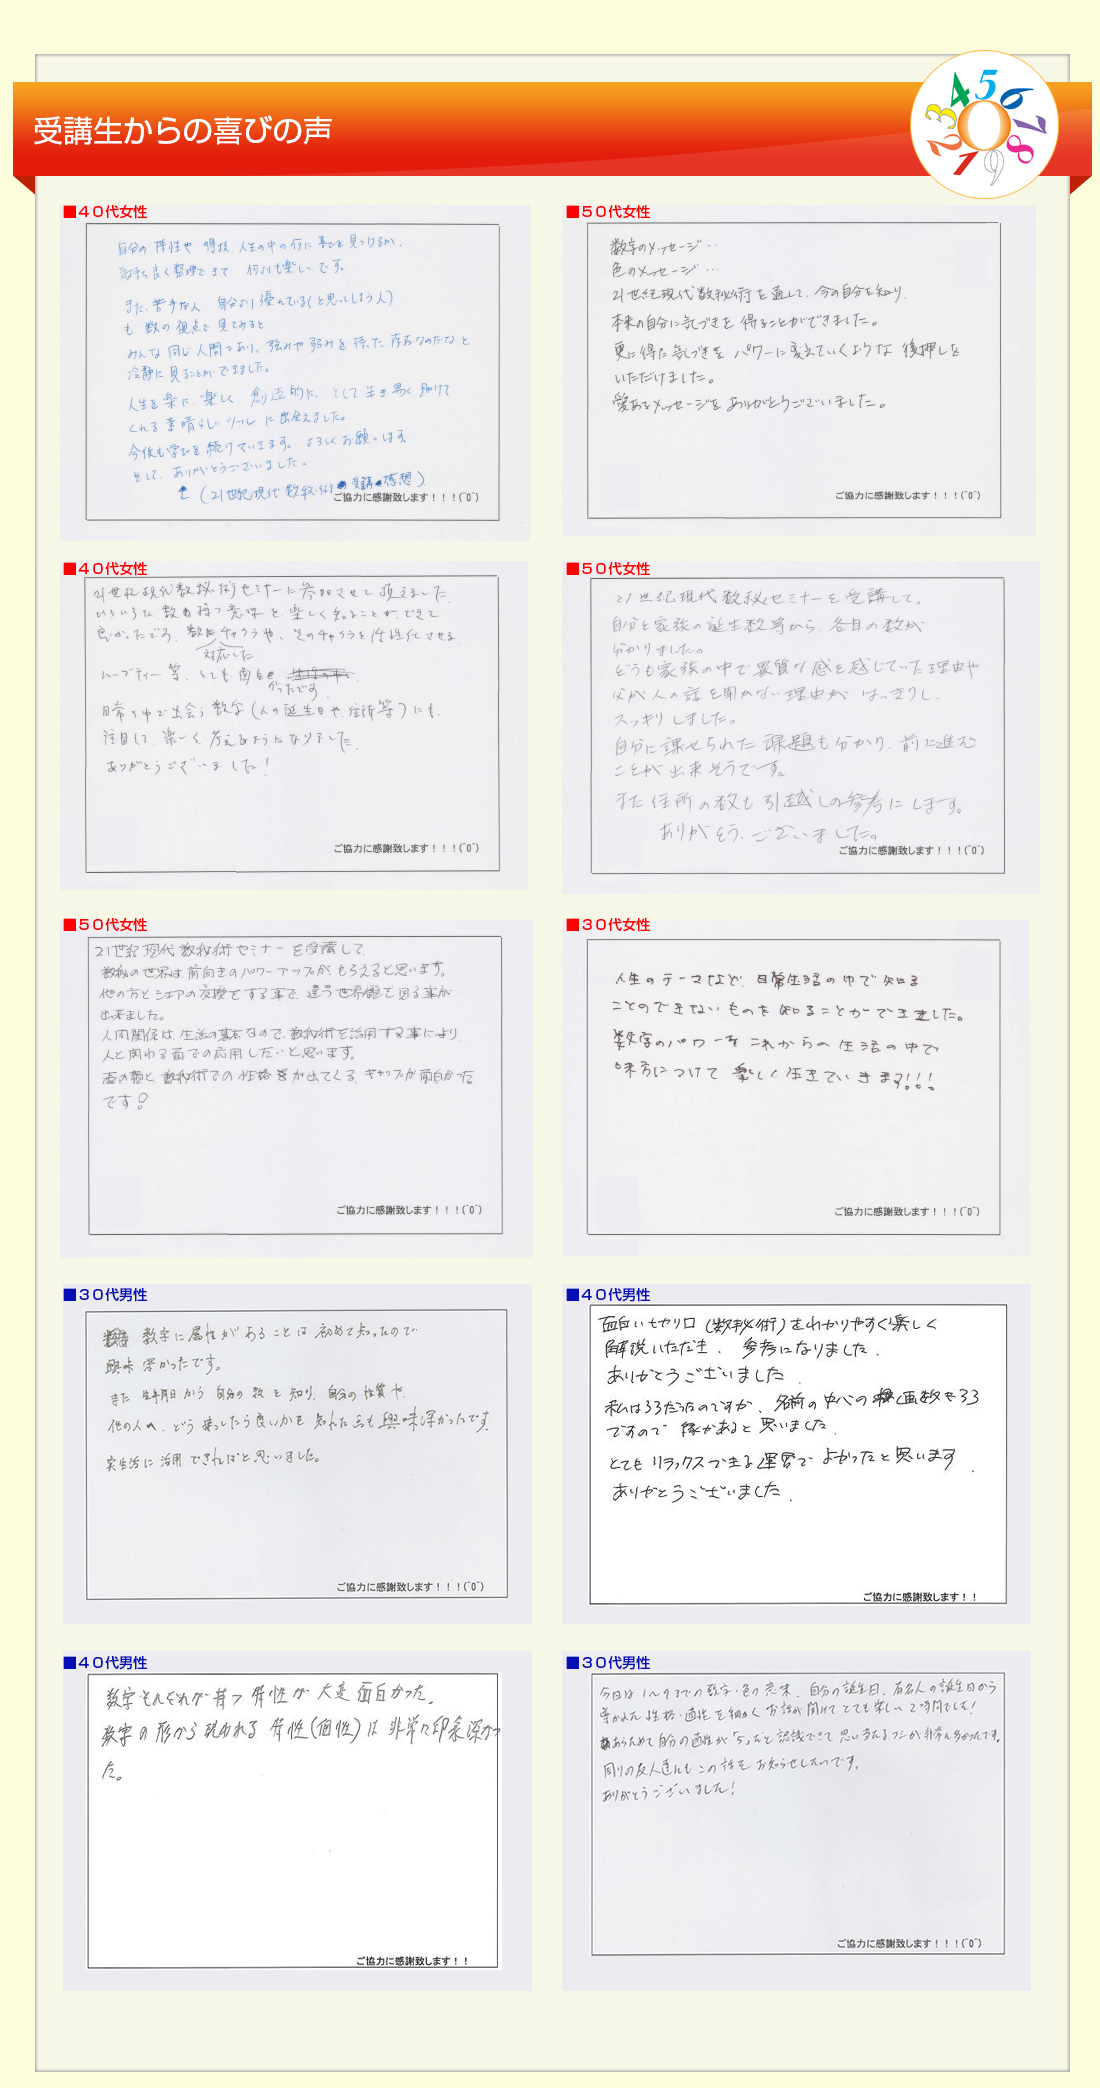 受講生からの喜びの声
4 5 6 7 8 9 1 2 3 0
■40代女性
自分の特性や 特技、人生の中の何に喜びを見つけるか、
気持ち良く整理できて 何よりも楽しいです。
また、苦手な人、自分より優れている(と思ってしまう人)
も 数の視点で見てみると
みんな同じ人間であり、強みや弱みを持った存在なのだなと
冷静に見ることができました。
人生を楽に、楽しく 創造的に、そして生き易く助けて
くれる素晴らしいツールに出会えました。
今後も学びを続けていきます。よろしくお願いします。
そして、ありがとうございました。
↑(21世紀現代数秘術 受講 感想)
ご協力に感謝致します!!!(^0^)
■50代女性
数字のメッセージ…
色のメッセージ…
21世紀現代数秘術を通して、今の自分を知り、
本来の自分に気づきを得ることができました。
更に得た気づきを パワーに変えていくような 後押しを
いただけました。
愛あるメッセージをありがとうございました。
ご協力に感謝致します!!!(^0^)
■40代女性
21世紀現代数秘術セミナーに参加させて頂きました。
いろいろな 数の持つ意味を、楽しく知ることができて
良かったです。数に対応したチャクラや、そのチャクラを活性化させる
ハーブティー等、とても面白かったです。
日常の中で出会う数字(人の誕生日や、住所等)にも、
注目して、楽しく、考えるようになりました。
ありがとうございました!
ご協力に感謝致します!!!(^0^)
■50代女性
21世紀現代数秘セミナーを受講して。
自分と家族の誕生数等から、各自の数が
分かりました。
どうも家族の中で異質な感を感じていた理由や
父が人の話を聞かない理由が はっきりし、
スッキリしました。
自分に課せられた課題も分かり、前に進む
ことが出来そうです。
また住所の数も引越しの参考にします。
ありがとう、ございました。
ご協力に感謝致します!!!(^0^)
■50代女性
21世紀現代数秘術セミナーを受講して、
数秘の世界は前向きのパワーアップが、もらえると思います。
他の方とシェアの交換をする事で、違う世界観を図る事が
出来ました。
人間関係は、生活の基本なので、数秘術を活用する事により、
人と関わる面での応用したいと思います。
数秘術での性格等が出てくる、ギャップが面白かった
です!
ご協力に感謝致します!!!(^0^)
■30代女性
人生のテーマなど、日常生活の中で知る
ことのできないものを知ることができました。
数字のパワーをこれからの生活の中で
味方につけて楽しく生きていきます!!!
ご協力に感謝致します!!!(^0^)
■30代男性
数字に属性があることは初めて知ったので
興味深かったです。
また 生年月日から 自分の数を知り、自分の性質や、
他の人へ、どう接したら良いかを 知れた点も興味深かったです。
実生活に活用できればと思いました。
ご協力に感謝致します!!!(^0^)
■40代男性
面白いセオリー(数秘術)をわかりやすく楽しく
解説いただき、参考になりました。
ありがとうございました
私は33だったのですが、名前の中心の画数も33
ですので 縁があると思いました。
とてもリラックスできる運営でよかったと思います。
ありがとうございました。
ご協力に感謝致します!!
■40代男性
数字それぞれが持つ特性が大変面白かった。
数字の形から現われる特性(個性)は非常に印象深かっ
た。
ご協力に感謝致します!!
■30代男性
今日は1~9までの数字・色の意味、自分の誕生日、有名人の誕生日から
導かれた性格・適性を細かくお話が聞けてとても楽しい2時間でした!
あらためて自分の適性が「5」だと認識できて思い当たるフシが非常に多かったです。
周りの友人達にもこの話をお知らせしたいです。
ありがとうございました!
ご協力に感謝致します!!!(^0^)